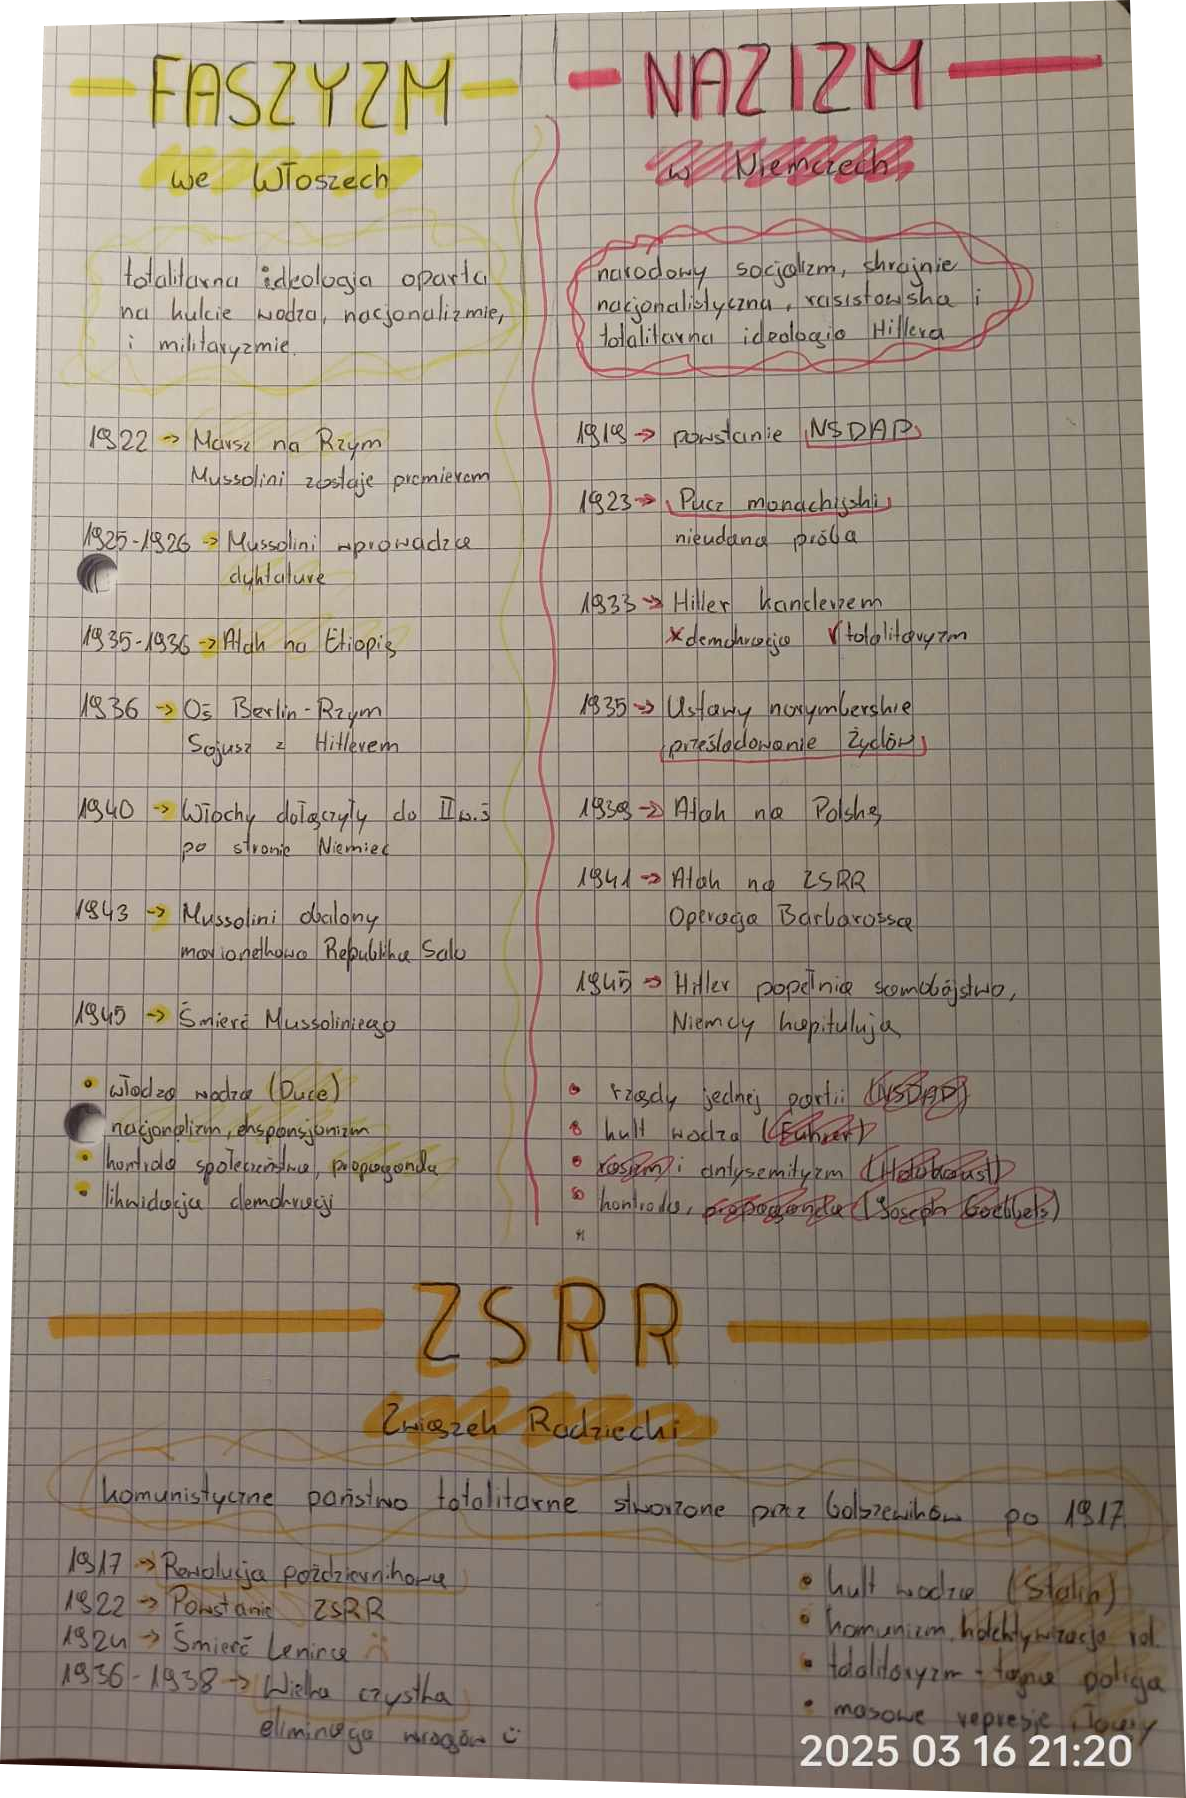 FASZYZM
we Włoszech
totalitarna ideologia oparta
na kulcie wodza, nacjonalizmie,
i militaryzmie.
1922 → Marsz na Rzym
Mussolini zostaje premierem
1925-1926 → Mussolini wprowadza
dyktaturę
1935-1936 → Atak na Etiopię
1936 → Oś Berlin-Rzym
Sojusz z Hitlerem
1940 → Włochy dołączyły do II w.ś
po stronie Niemiec
1943 → Mussolini obalony
marionetkowa Republika Salo
1945 → Śmierć Mussoliniego
• władza wodza (Duce)
nacjonalizm, ekspansjonizm
• kontrola społeczeństwa, propaganda
• likwidacja demokracji
NAZIZM
w Niemczech
narodowy socjalizm, skrajnie
nacjonalistyczna, rasistowska i
totalitarna ideologia Hitlera
1919 → powstanie NSDAP
1923 → Pucz monachijski
nieudana próba
1933 → Hitler kanclerzem
x demokracja √ totalitaryzm
1935 → Ustawy norymberskie
prześladowanie Żydów
1939 → Atak na Polskę
1941 → Atak na ZSRR
Operacja Barbarossa
1945 → Hitler popełnia samobójstwo,
Niemcy kapitulują
• rządy jednej partii (NSDAP)
• kult wodza (Führer)
• rasizm i antysemityzm (Holokaust)
• kontrola, propaganda (Joseph Goebbels)
ZSRR
Związek Radziecki
komunistyczne państwo totalitarne stworzone przez bolszewików po 1917.
1917 → Rewolucja październikowa
1922 → Powstanie ZSRR
1924 → Śmierć Lenina
1936-1938 → Wielka czystka
eliminacja wrogów
• kult wodza (Stalin)
• komunizm, kolektywizacja rol.
• totalitaryzm - tajna policja
• masowe represje, łagry
2025 03 16 21:20